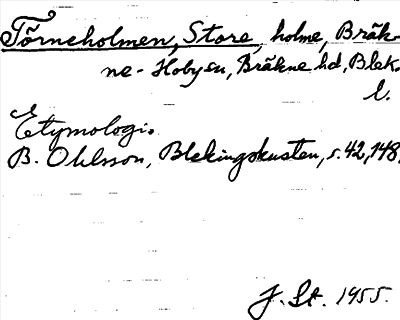 Törneholmen, Store, holme, Bräk-
ne-Hoby sn, Bräkne hd, Blek.
l.
Etymologi.
B. Ohlsson, Blekingskusten, s. 42, 148.
J. St. 1955.